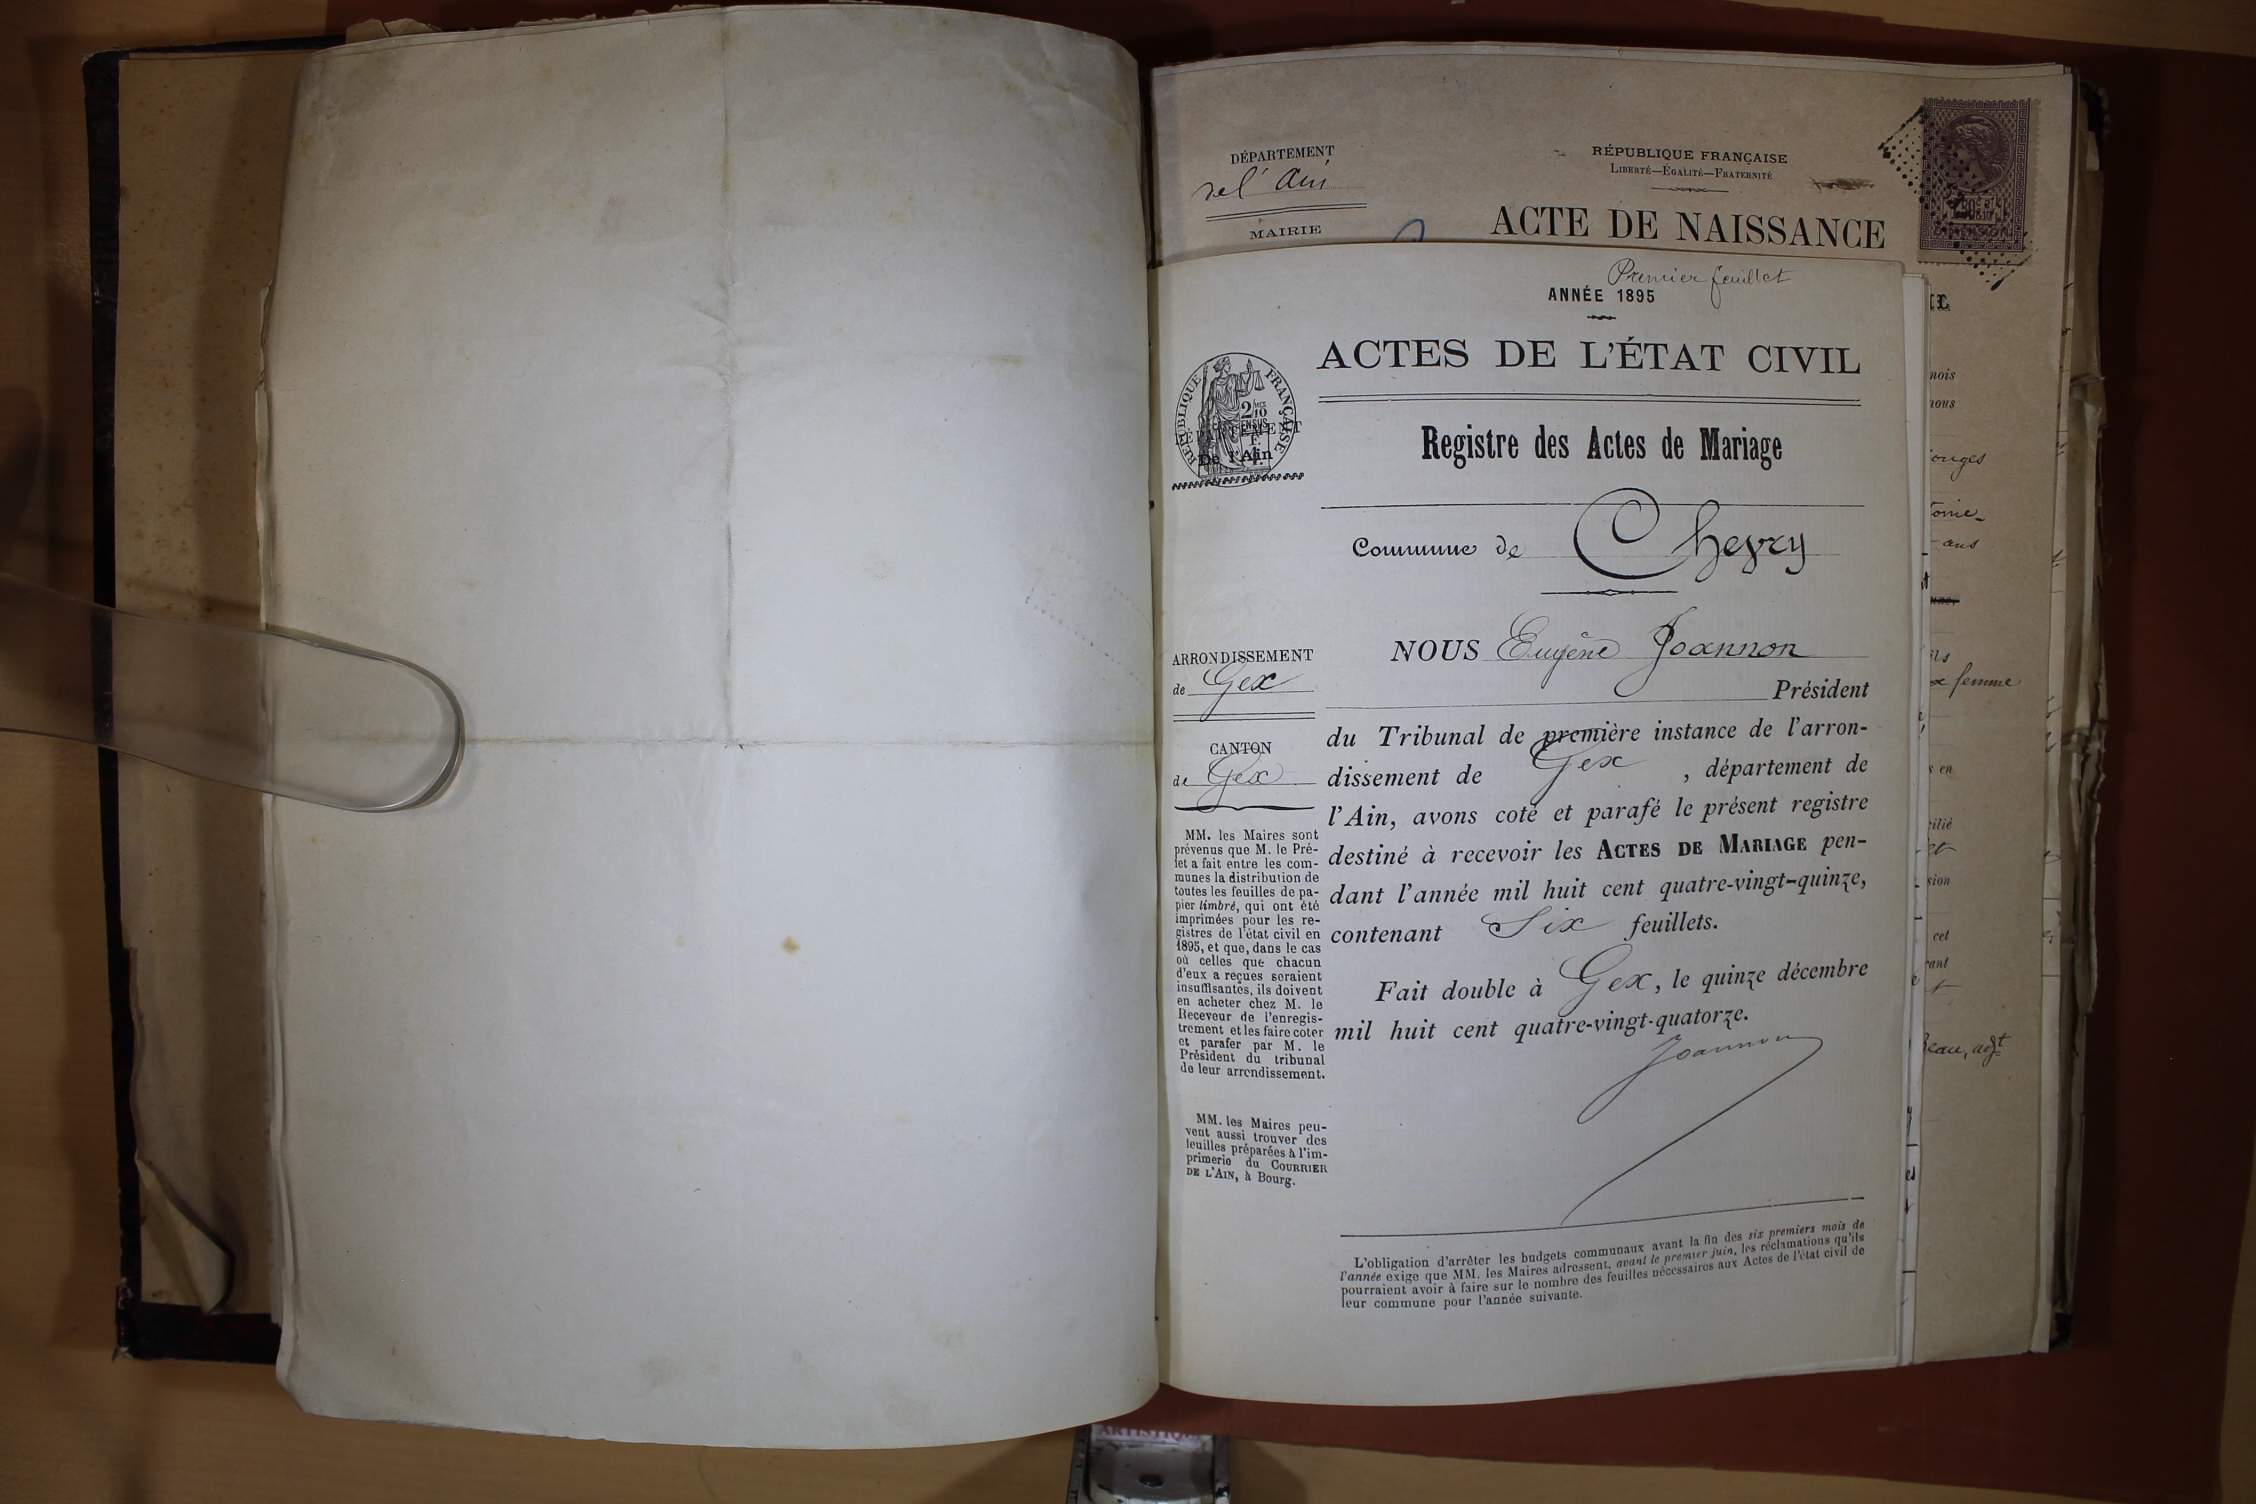 DÉPARTEMENT
de l'Ain
MAIRIE
RÉPUBLIQUE FRANÇAISE
LIBERTÉ—ÉGALITÉ—FRATERNITÉ
ACTE DE NAISSANCE
Premier feuillet
ANNÉE 1895
ACTES DE L'ÉTAT CIVIL
RÉPUBLIQUE FRANÇAISE
2/10
DÉPARTEMENT
De l'Ain
Registre des Actes de Mariage
Commune de Chevry
ARRONDISSEMENT
de Gex
CANTON
de Gex
MM. les Maires sont
prévenus que M. le Pré-
fet a fait entre les com-
munes la distribution de
toutes les feuilles de pa-
pier timbré, qui ont été
imprimées pour les re-
gistres de l'état civil en
1895, et que, dans le cas
où celles que chacun
d'eux a reçues seraient
insuffisantes, ils doivent
en acheter chez M. le
Receveur de l'enregis-
trement et les faire coter
et parafer par M. le
Président du tribunal
de leur arrondissement.
MM. les Maires peu-
vent aussi trouver des
feuilles préparées à l'im-
primerie du COURRIER
DE L'AIN, à Bourg.
NOUS Eugène Joannon
Président
du Tribunal de première instance de l'arron-
dissement de Gex, département de
l'Ain, avons coté et parafé le présent registre
destiné à recevoir les ACTES DE MARIAGE pen-
dant l'année mil huit cent quatre-vingt-quinze,
contenant Six feuillets.
Fait double à Gex, le quinze décembre
mil huit cent quatre-vingt-quatorze.
Joannon
L'obligation d'arrêter les budgets communaux avant la fin des six premiers mois de
l'année exige que MM. les Maires adressent, avant le premier juin, les réclamations qu'ils
pourraient avoir à faire sur le nombre des feuilles nécessaires aux Actes de l'état civil de
leur commune pour l'année suivante.
mois
nous
ans
femme
en
cet
Beau, adjt